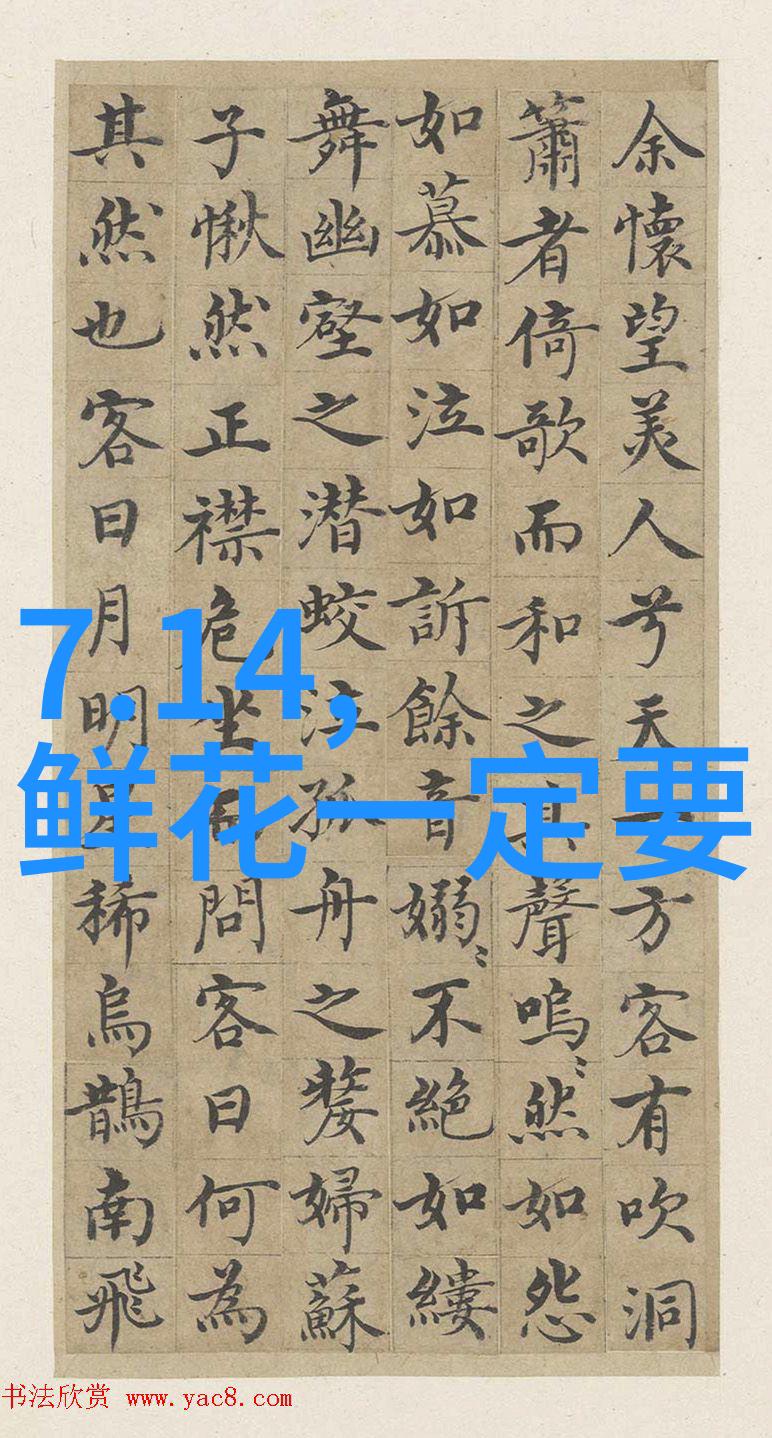 余懷望美人兮天一方客有吹洞
簫者倚歌而和之其聲嗚〻然如怨
如慕如泣如訴餘音嫋〻不絕如縷
舞幽壑之潜蛟泣孤舟之嫠婦蘇
子愀然正襟危坐而問客曰何為
其然也客曰月明星稀烏鵲南飛
7.14,
鲜花一定要
书法欣赏 www.yac8.com